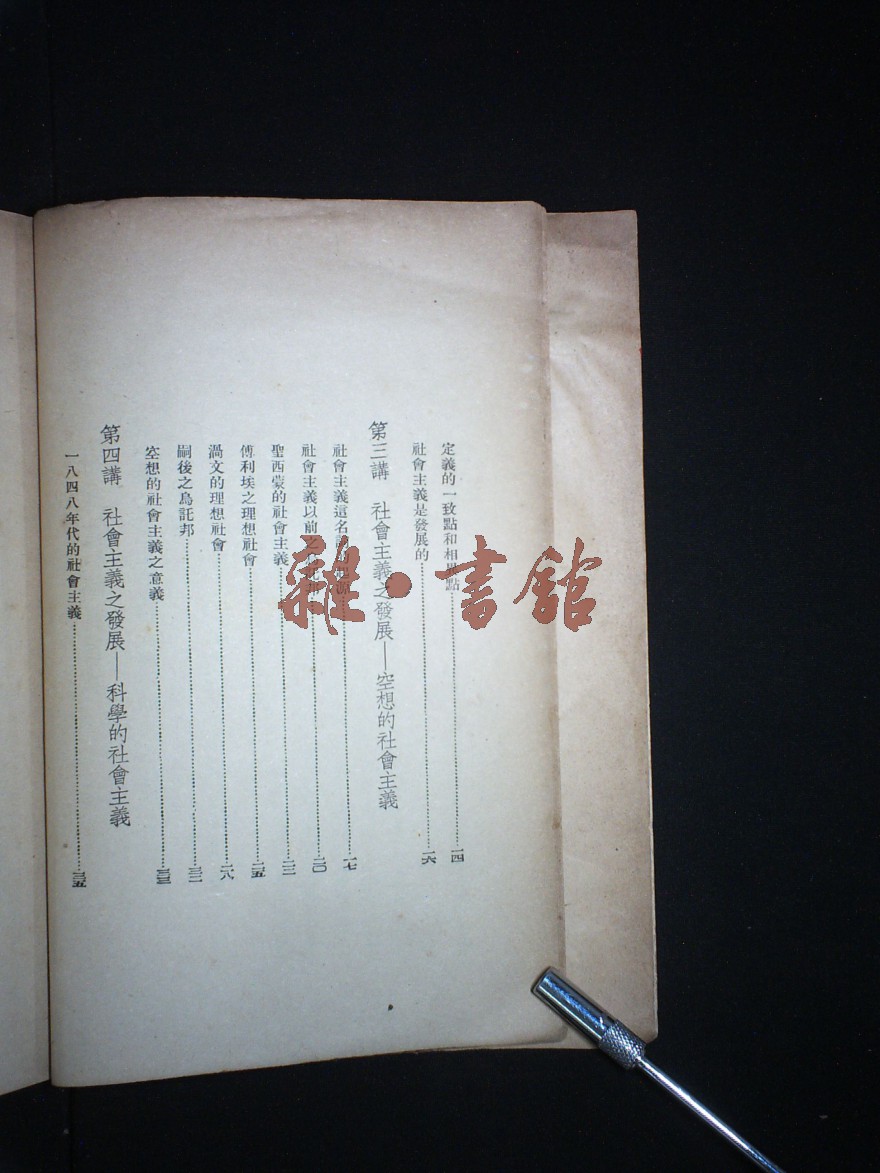 定義的一致點和相異點……一四
社會主義是發展的……一六
第三講　社會主義之發展——空想的社會主義
社會主義這名……一七
社會主義以前之……二〇
聖西蒙的社會主義……二二
傅利埃之理想社會……二五
渦文的理想社會……二八
嗣後之烏託邦……三二
空想的社會主義之意義……三三
第四講　社會主義之發展——科學的社會主義
一八四八年代的社會主義……三五
雜·書館